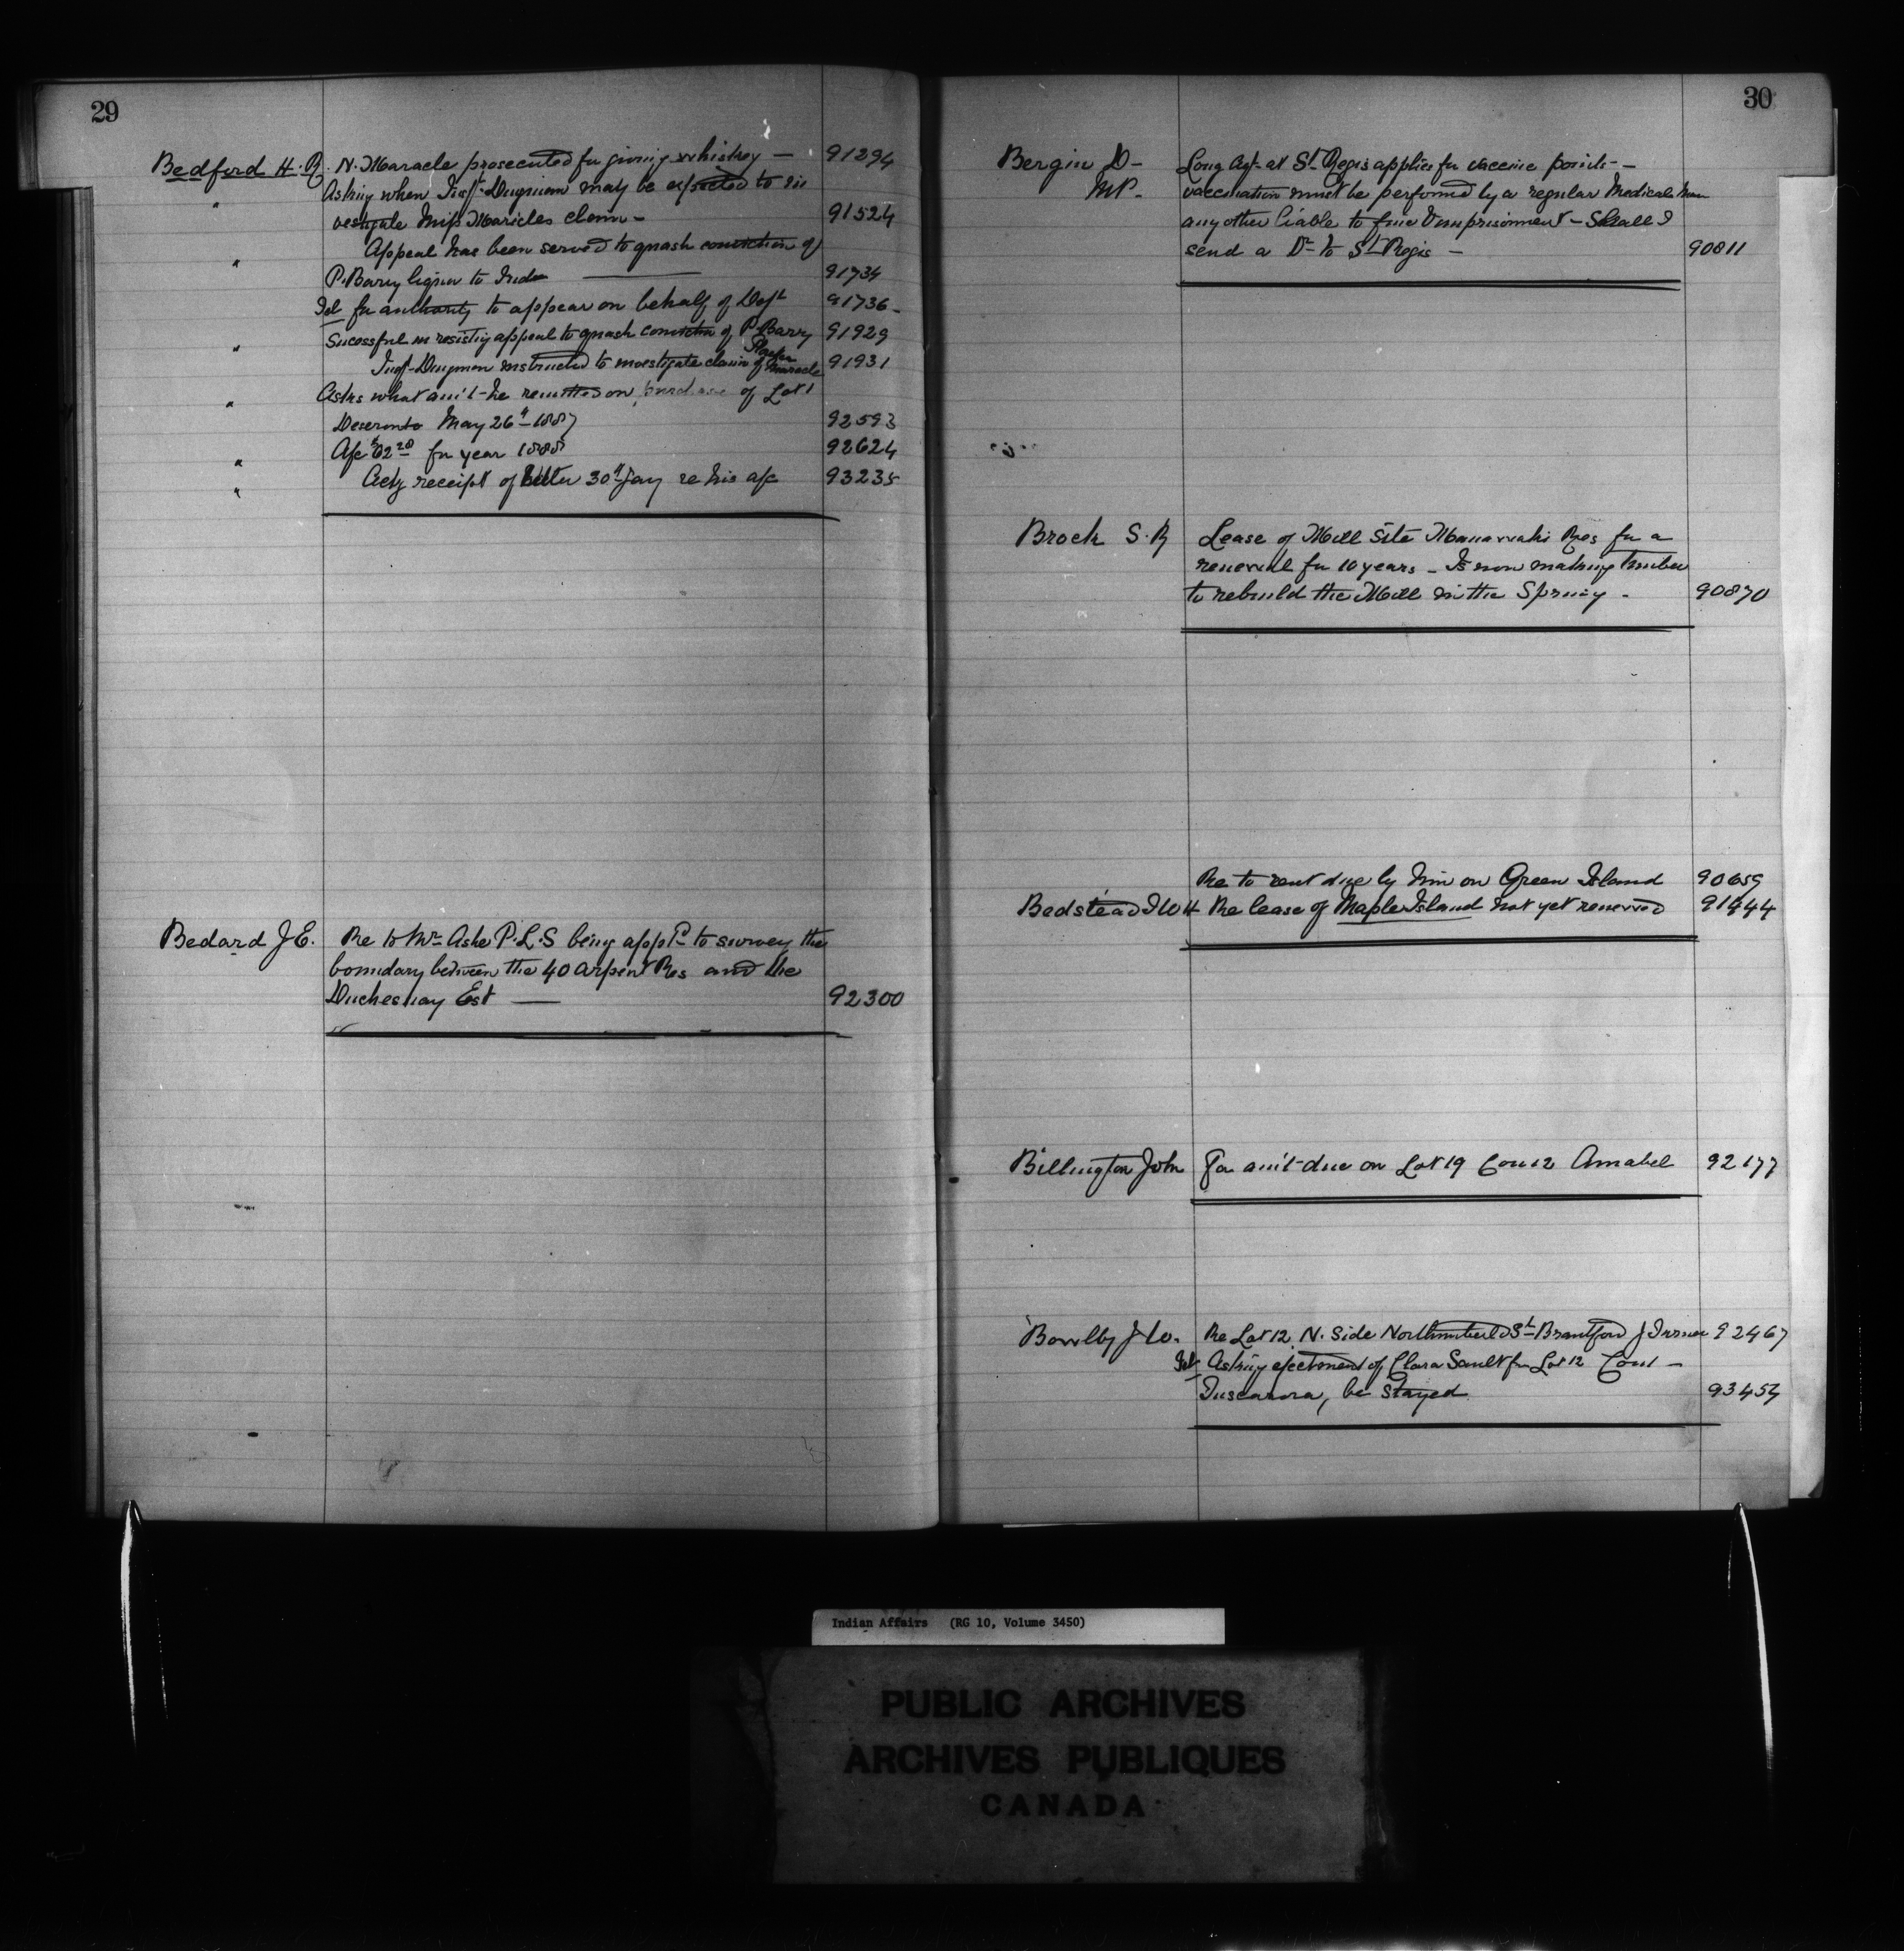 29
Bedford H. R. N. Maracle prosecuted for giving whiskey — 91294
" Asking when Insp. Dingman may be expected to in
vestigate Miss Maricles claim - 91524
" Appeal has been served to quash conviction of
P. Barry liquor to Inds 91734
Tel for authority to appear on behalf of Dept 91736
" Sucessful in resisting appeal to quash conviction of P. Barry 91929
Insp. Dingman instructed to investigate claim of Maracle 91931
" Asks what am't he remitted on purchase of Lot 1
Deseronto May 26th 1887 92593
" A/c for year 1888 92624
" Ackg receipt of letter 30th Jany re his a/c 93235
Bedard J E. Re to Mr Ashe P.L.S being app'd to survey the
boundary between the 40 arpent Res and the
Duchesnay Est — 92300
30
Bergin D- Long Agt. at St Regis applies for vaccine points -
MP. vaccination must be performed by a regular Medical man
any other liable to fine & imprisonment - Shall I
send a Dr to St Regis - 90811
Brock S. R Lease of Mill Site Maniwaki Res for a
renewal for 10 years - Is now making timber
to rebuild the Mill in the Spring - 90870
Re to rent due by him on Green Island 90659
Bedstead I W H Re lease of Maple Island not yet renewed 91444
Billington John For am't due on Lot 19 Con 12 Amabel 92177
Bowlby J W. Re Lot 12 N. Side Northumberld St Brantford J Turner 92467
Tel Asking ejectment of Clara Sault fr Lot 12 Con 1 -
Tuscarora, be stayed 93454
Indian Affairs (RG 10, Volume 3450)
PUBLIC ARCHIVES
ARCHIVES PUBLIQUES
CANADA